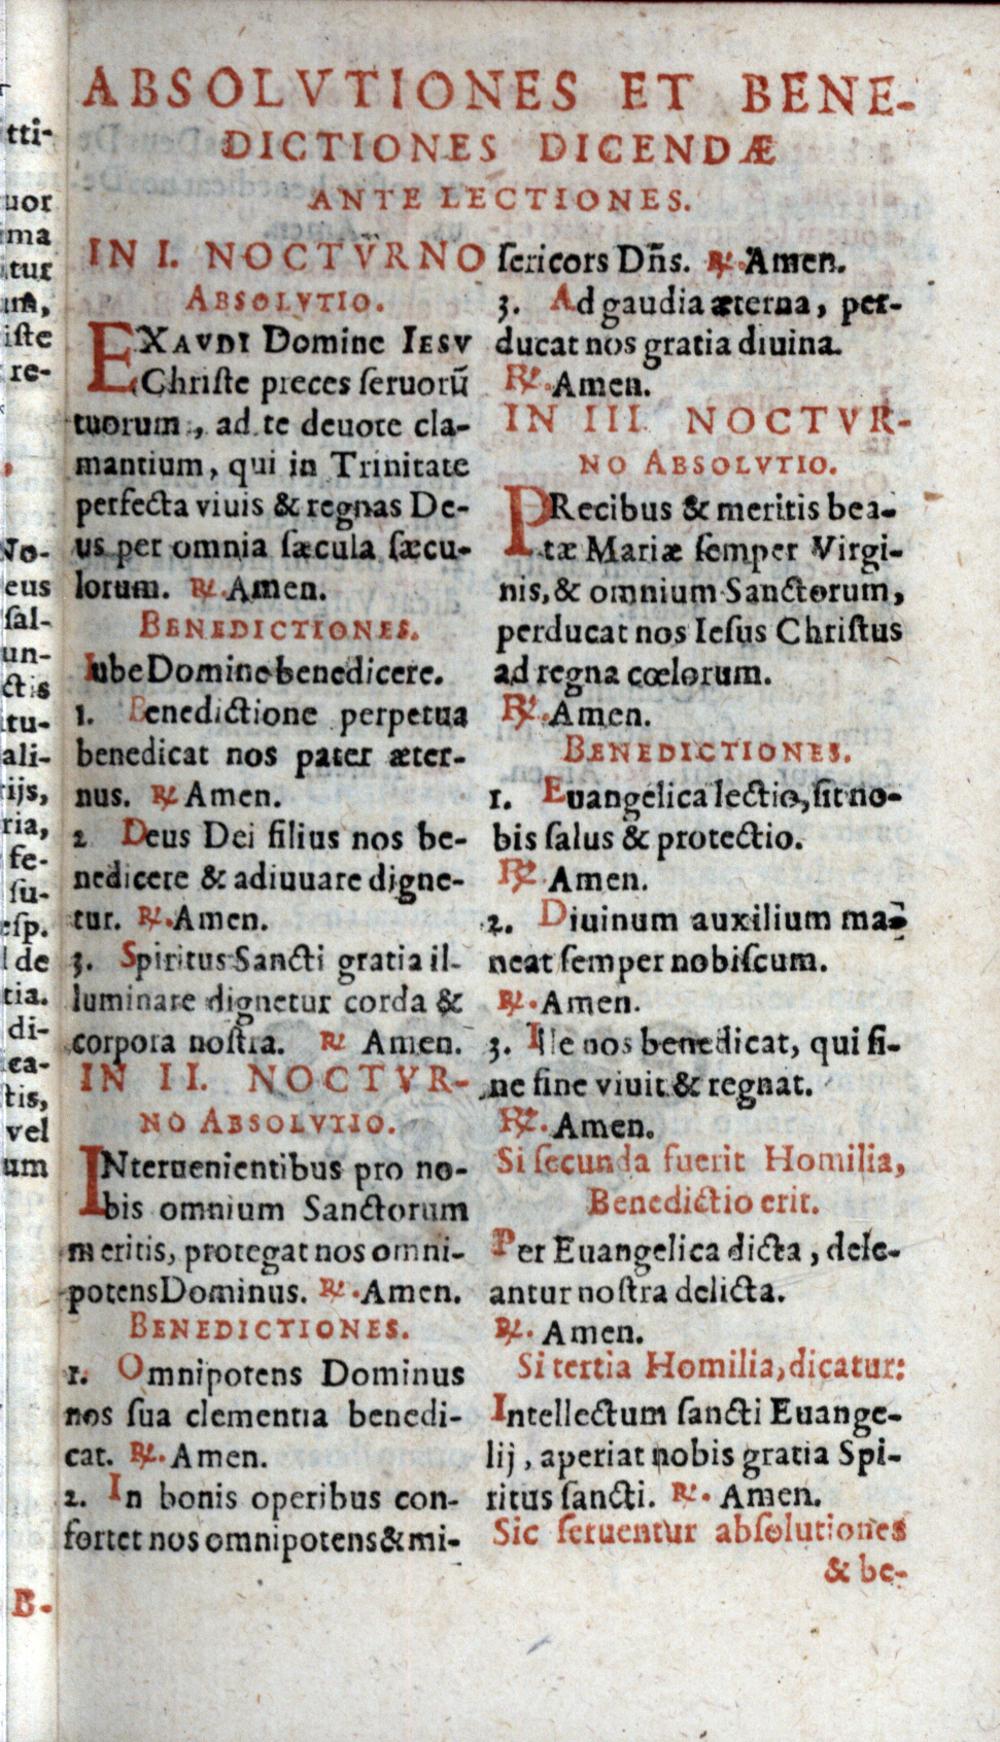 ABSOLVTIONES ET BENE-
DICTIONES DICENDÆ
ANTE LECTIONES.
IN I. NOCTVRNO
ABSOLVTIO.
EXAVDI Domine IESV
Christe preces seruorū
tuorum, ad te deuote cla-
mantium, qui in Trinitate
perfecta viuis & regnas De-
us per omnia sæcula sæcu-
lorum. ℟. Amen.
BENEDICTIONES.
Iube Domine benedicere.
1. Benedictione perpetua
benedicat nos pater æter-
nus. ℟ Amen.
2 Deus Dei filius nos be-
nedicere & adiuuare digne-
tur. ℟. Amen.
3. Spiritus Sancti gratia il-
luminare dignetur corda &
corpora nostra. ℟ Amen.
IN II. NOCTVR-
NO ABSOLVTIO.
INteruenientibus pro no-
bis omnium Sanctorum
meritis, protegat nos omni-
potens Dominus. ℟. Amen.
BENEDICTIONES.
1. Omnipotens Dominus
nos sua clementia benedi-
cat. ℟. Amen.
2. In bonis operibus con-
fortet nos omnipotens & mi-
sericors Dñs. ℟. Amen.
3. Ad gaudia æterna, per-
ducat nos gratia diuina.
℟. Amen.
IN III. NOCTVR-
NO ABSOLVTIO.
PRecibus & meritis bea-
tæ Mariæ semper Virgi-
nis, & omnium Sanctorum,
perducat nos Iesus Christus
ad regna cœlorum.
℟. Amen.
BENEDICTIONES.
1. Euangelica lectio, sit no-
bis salus & protectio.
℟ Amen.
2. Diuinum auxilium ma-
neat semper nobiscum.
℟. Amen.
3. Ille nos benedicat, qui si-
ne fine viuit & regnat.
℟. Amen.
Si secunda fuerit Homilia,
Benedictio erit.
Per Euangelica dicta, dele-
antur nostra delicta.
℟. Amen.
Si tertia Homilia, dicatur:
Intellectum sancti Euange-
lij, aperiat nobis gratia Spi-
ritus sancti. ℟. Amen.
Sic seruentur absolutiones
& be-